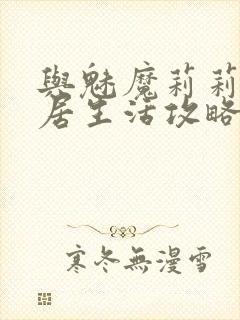 與魅魔莉莉
居生活攻略
寒冬無漫雪